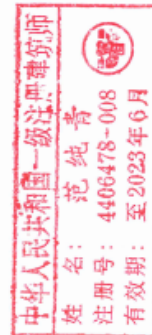 中华人民共和国一级注册建筑师
姓 名： 范纯青
注 册 号： 4406478-008
有 效 期： 至2023年6月